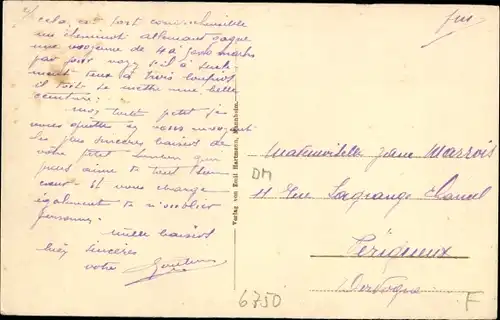 cela est tout compréhensible
un cheminot allemand gagne
une moyenne de 4 à 5000 marks
par jour voyez s'il a seule
ment deux à trois
il doit se mettre une belle
ceinture.
petit je
vous quitte en vous envoyant
les plus sincères baisers de
votre petit qui
vous aime de tout son
cœur. Il vous charge
également de n'oublier
personne.
Mille baisers
bien sincères
votre Gaston
Verlag von Emil Hartmann, Mannheim.
fin
Mademoiselle Jeane Marrois
11 Rue Lagrange Chancel
Périgueux
Dordogne
DM
6750
F